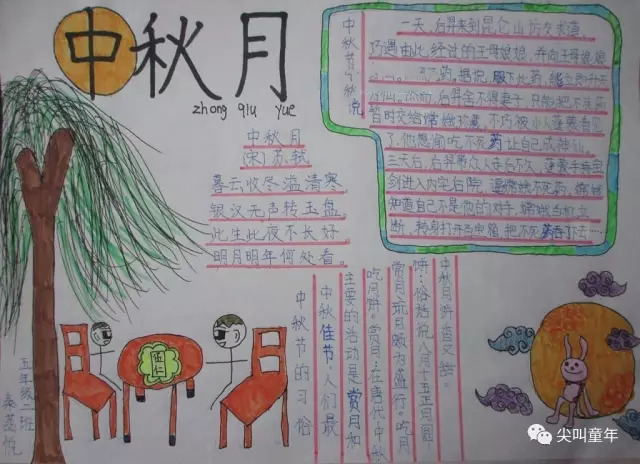 中秋月
zhong qiu yue
中秋月
(宋)苏轼
暮云收尽溢清寒
银汉无声转玉盘。
此生此夜不长好,
明月明年何处看。
中秋节传说
一天,后羿来到昆仑山访友求道,
巧遇由此经过的王母娘娘,并向王母娘娘
药。据说,服下此药,能立即升天
然而,后羿舍不得妻子,只能把不死药
暂时交给嫦娥珍藏。不巧被小人蓬蒙看见
了,他想偷吃不死药让自己成神仙。
三天后,后羿率众人走后不久,蓬蒙手持宝
剑进入内宅后院,逼嫦娥不死药。嫦娥
知道自己不是他的对手,嫦娥当机立
断,转身打开百宝箱,把不死药吞了下去……
中秋节的习俗
中秋佳节,人们最
主要的活动是赏月和
吃月饼。赏月:在唐代,中秋
赏月、玩月颇为盛行。吃月
饼:俗话说八月十五正月圆
中秋月饼香又甜。
伍仁
五年级二班
尖叫童年